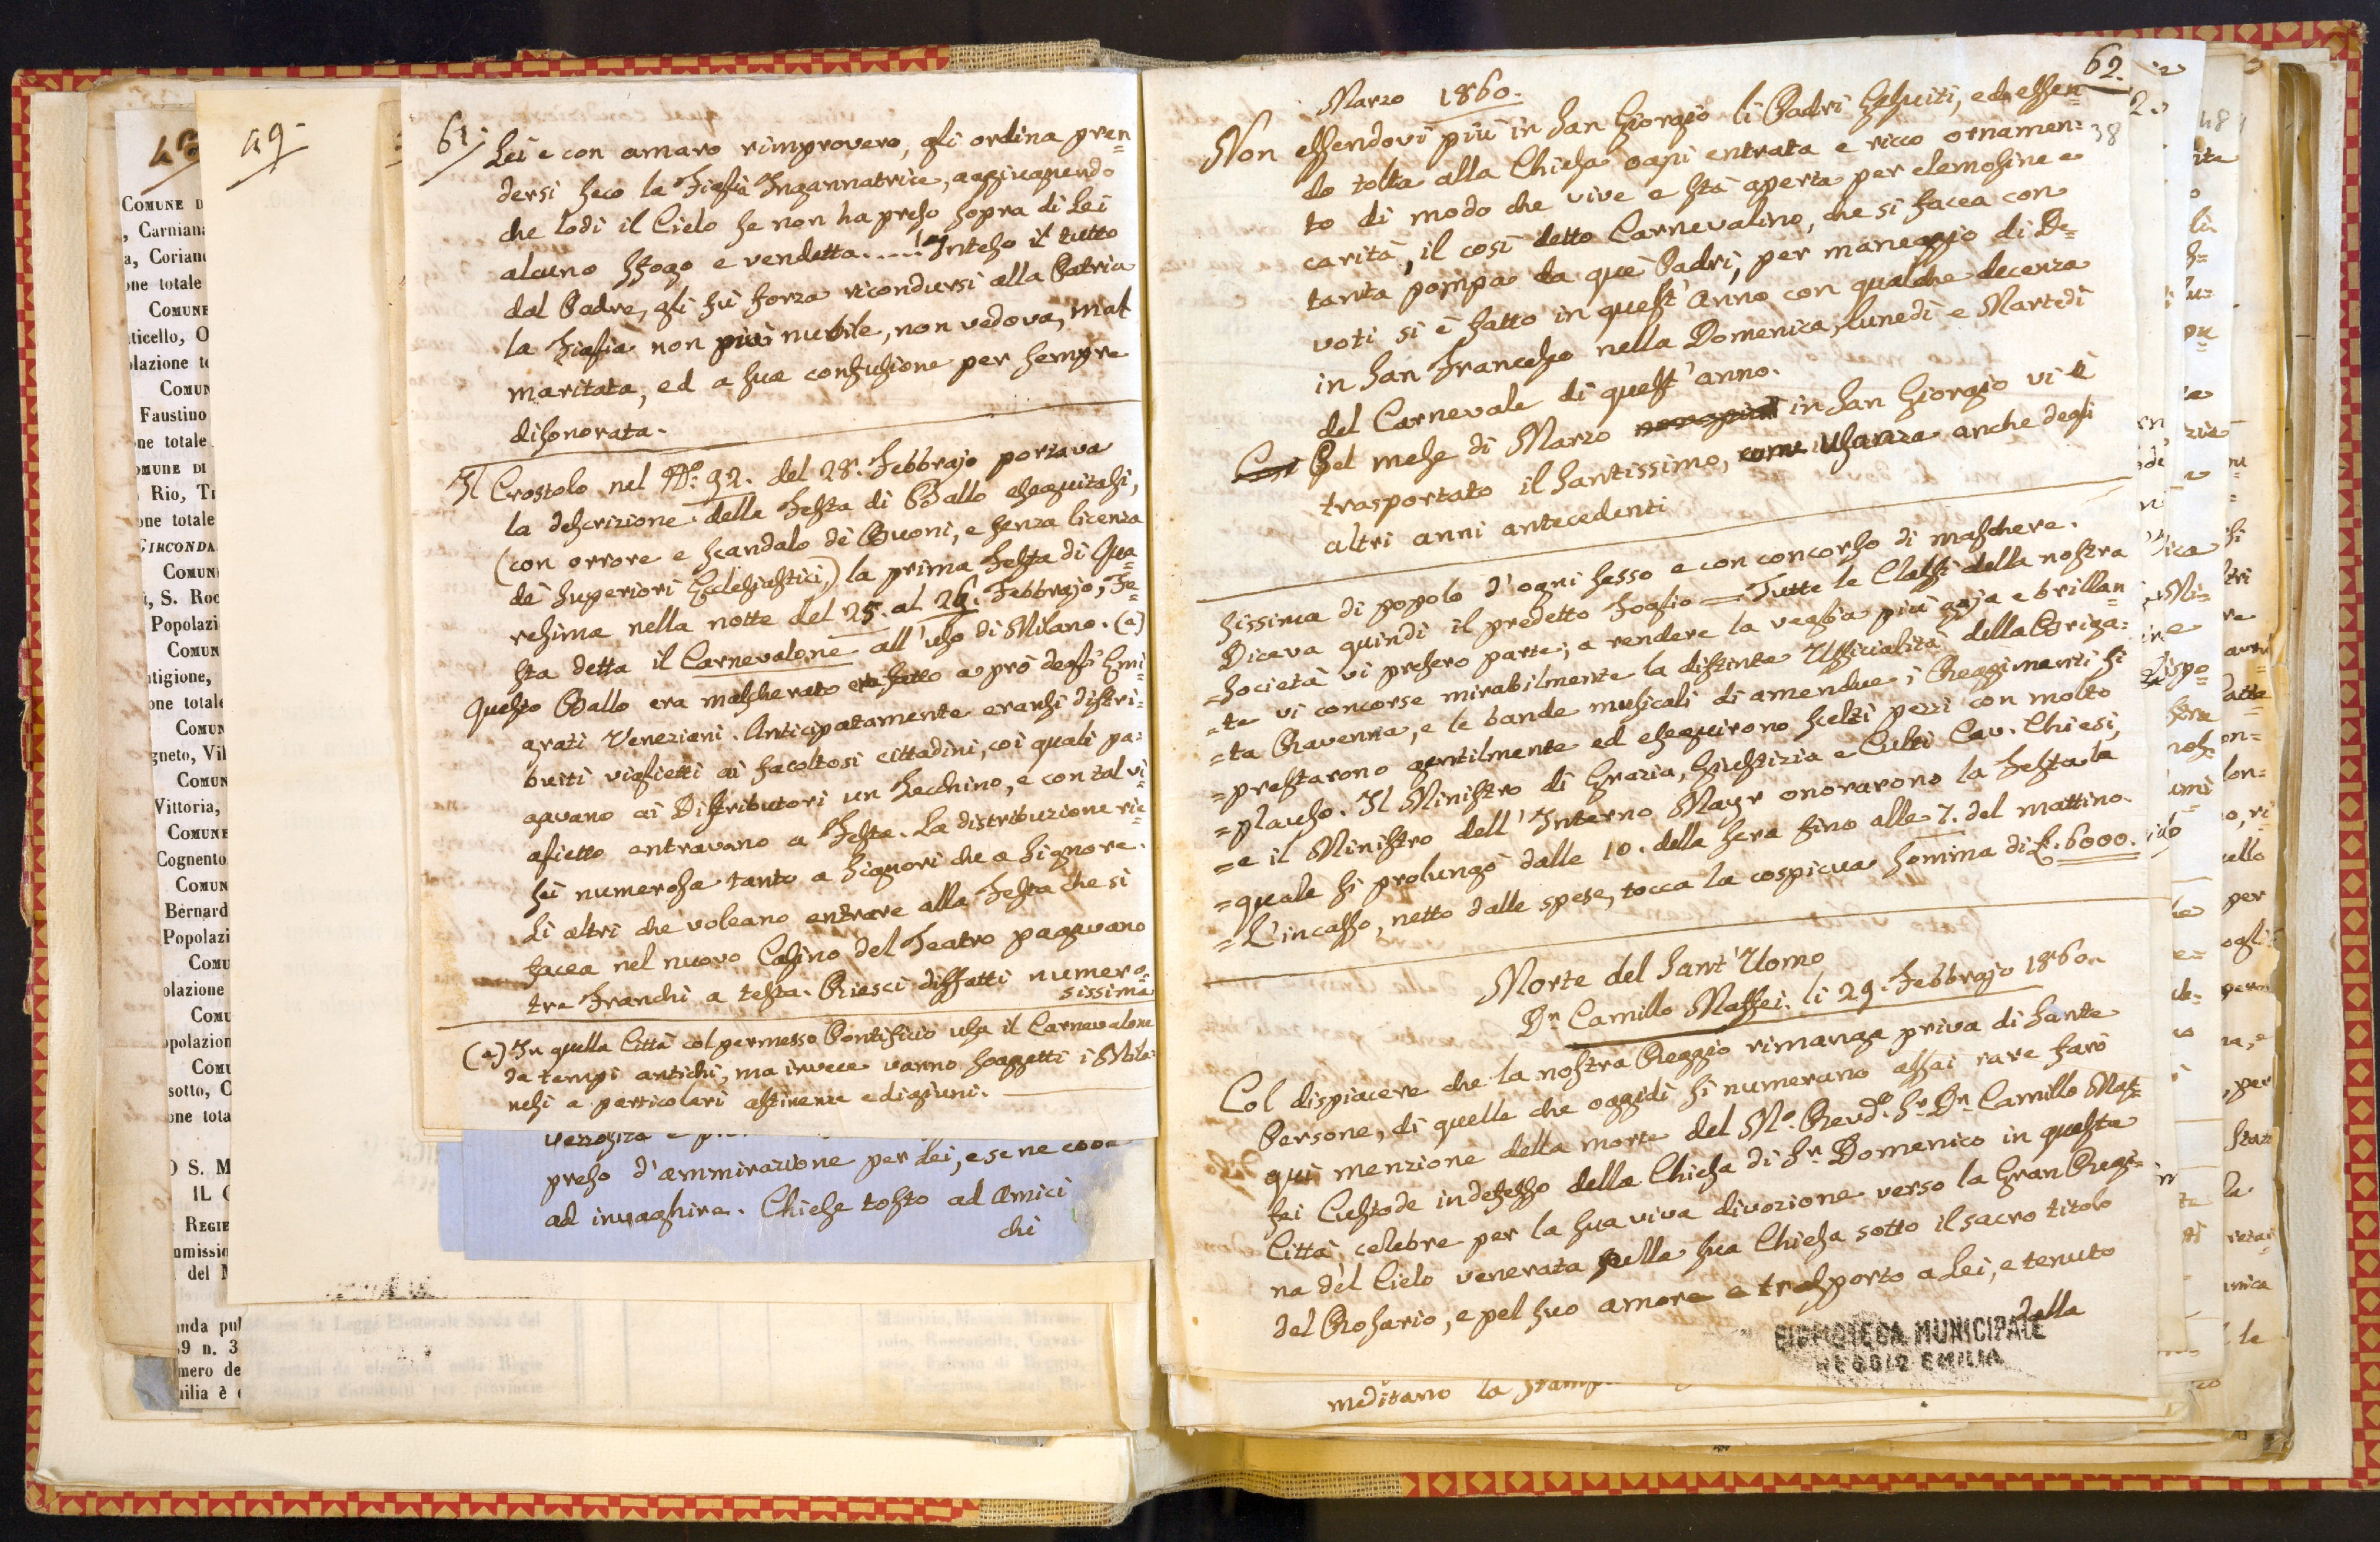 49
COMUNE D
, Carniana
a, Coriano
one totale
COMUNE
ticello, O
olazione to
COMUN
Faustino
one totale
OMUNE DI
Rio, Ti
one totale
CIRCONDA
COMUNI
i, S. Roc
Popolazi
COMUN
tigione,
one totale
COMUN
gneto, Vil
COMUN
Vittoria,
COMUNE
Cognento
COMUN
Bernard
Popolazi
COMU
olazione
COMU
opolazion
COMU
sotto, C
one tota
O S. M
IL C
REGIE
mmissio
del M
nda pul
9 n. 3
mero de
nilia è
61.
Lei e con amaro rimprovero, gli ordina pren=
dersi seco la Figlia Ingannatrice, aggiugnendo
che lodi il Cielo se non ha preso sopra di Lei
alcuno sfogo e vendetta.....! Inteso il tutto
dal Padre, gli fù forza ricondursi alla Patria
la Figlia non più nubile, non vedova, mal
maritata, ed a sua confusione per sempre
disonorata.
Il Crostolo nel N.° 92. del 28. Febbrajo portava
la descrizione della Festa di Ballo eseguitasi,
(con orrore e scandalo dè Buoni, e senza licenza
dè Superiori Ecclesiastici,) la prima Festa di Qua=
resima nella notte del 25. al 26. Febbrajo, Fe=
sta detta il Carnevalone all'uso di Milano. (a)
Questo Ballo era mascherato era fatto a prò degli Emi=
grati Veneziani. Anticipatamente eransi distri=
buiti viglietti ai facoltosi cittadini, coi quali pa=
gavano ai Distributori un Zecchino, e con tal vi=
glietto entravano a Festa. La distribuzione rie=
scì numerosa tanto a Signori che a Signore.
Li altri che voleano entrare alla Festa che si
facea nel nuovo Casino del Teatro pagavano
tre Franchi a testa. Riescì diffatti numero=
sissima
(a) In quella Città col permesso Pontificio usa il Carnevalone
da tempi antichi, ma invece vanno soggetti i Mila=
nesi a particolari astinenze e digiuni.
preso d'ammirazione per Lei, e se ne ebbe
ad invaghire. Chiese tosto ad Amici
chi
62.
38
48
Marzo 1860.
Non essendovi più in San Giorgio li Padri Gesuiti, ed essen=
do tolta alla Chiesa ogni entrata e ricco ornamen=
to di modo che vive e stà aperta per elemosine e
carità, il così detto Carnevalino, che si facea con
tanta pompa da què Padri, per maneggio di De=
voti si è fatto in quest'anno con qualche decenza
in San Francesco nella Domenica, Lunedì e Martedì
del Carnevale di quest'anno.
Pel mese di Marzo in San Giorgio vi è
trasportato il Santissimo, come usanza anche degli
altri anni antecedenti
sissima di popolo d'ogni sesso e con concorso di maschere.
Diceva quindi il predetto Foglio — Tutte le Classi della nostra
=Società vi presero parte; a rendere la veglia più gaja e brillan=
=te vi concorse mirabilmente la distinta Ufficialità della Briga=
=ta Ravenna, e le bande musicali di amendue i Reggimenti si
=prestarono gentilmente ed eseguirono scelti pezzi con molto
=plauso. Il Ministro di Grazia, Giustizia e Culti Cav. Chiesi,
=e il Ministro dell'Interno Mayr onorarono la Festa la
=quale si prolungò dalle 10. della sera fino alle 7. del mattino.
=L'incasso, netto dalle spese, tocca la cospicua somma di £. 6000.
Morte del Sant'Uomo
Dn Camillo Maffei. li 29. Febbrajo 1860.
Col dispiacere che la nostra Reggio rimanga priva di Sante
Persone, di quelle che oggidì si numerano assai rare farò
quì menzione della morte del M.° Revd.° Sr. Dn. Camillo Maf=
fei Custode indefesso della Chiesa di Sn. Domenico in questa
Città, celebre per la sua viva divozione verso la Gran Regi=
na del Cielo venerata nella sua Chiesa sotto il sacro titolo
del Rosario, e pel suo amore e trasporto a Lei, e tenuto
dalla
BIBLIOTECA MUNICIPALE
REGGIO EMILIA
meditano la